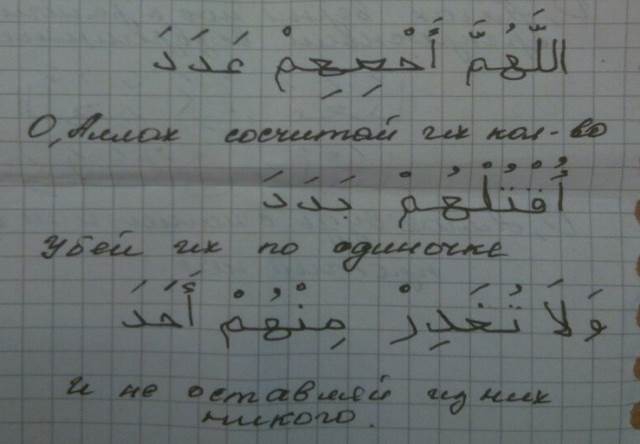 اللَّهُمَّ أَحْصِعِهِمْ عَدَدَ
О, Аллах сосчитай их кол-во
أُقْتُلْهُمْ بَدَدَ
Убей их по одиночке
وَلاَ تُغَدِرْ مِنْهُمْ أَحَدَ
И не оставляй из них
никого.